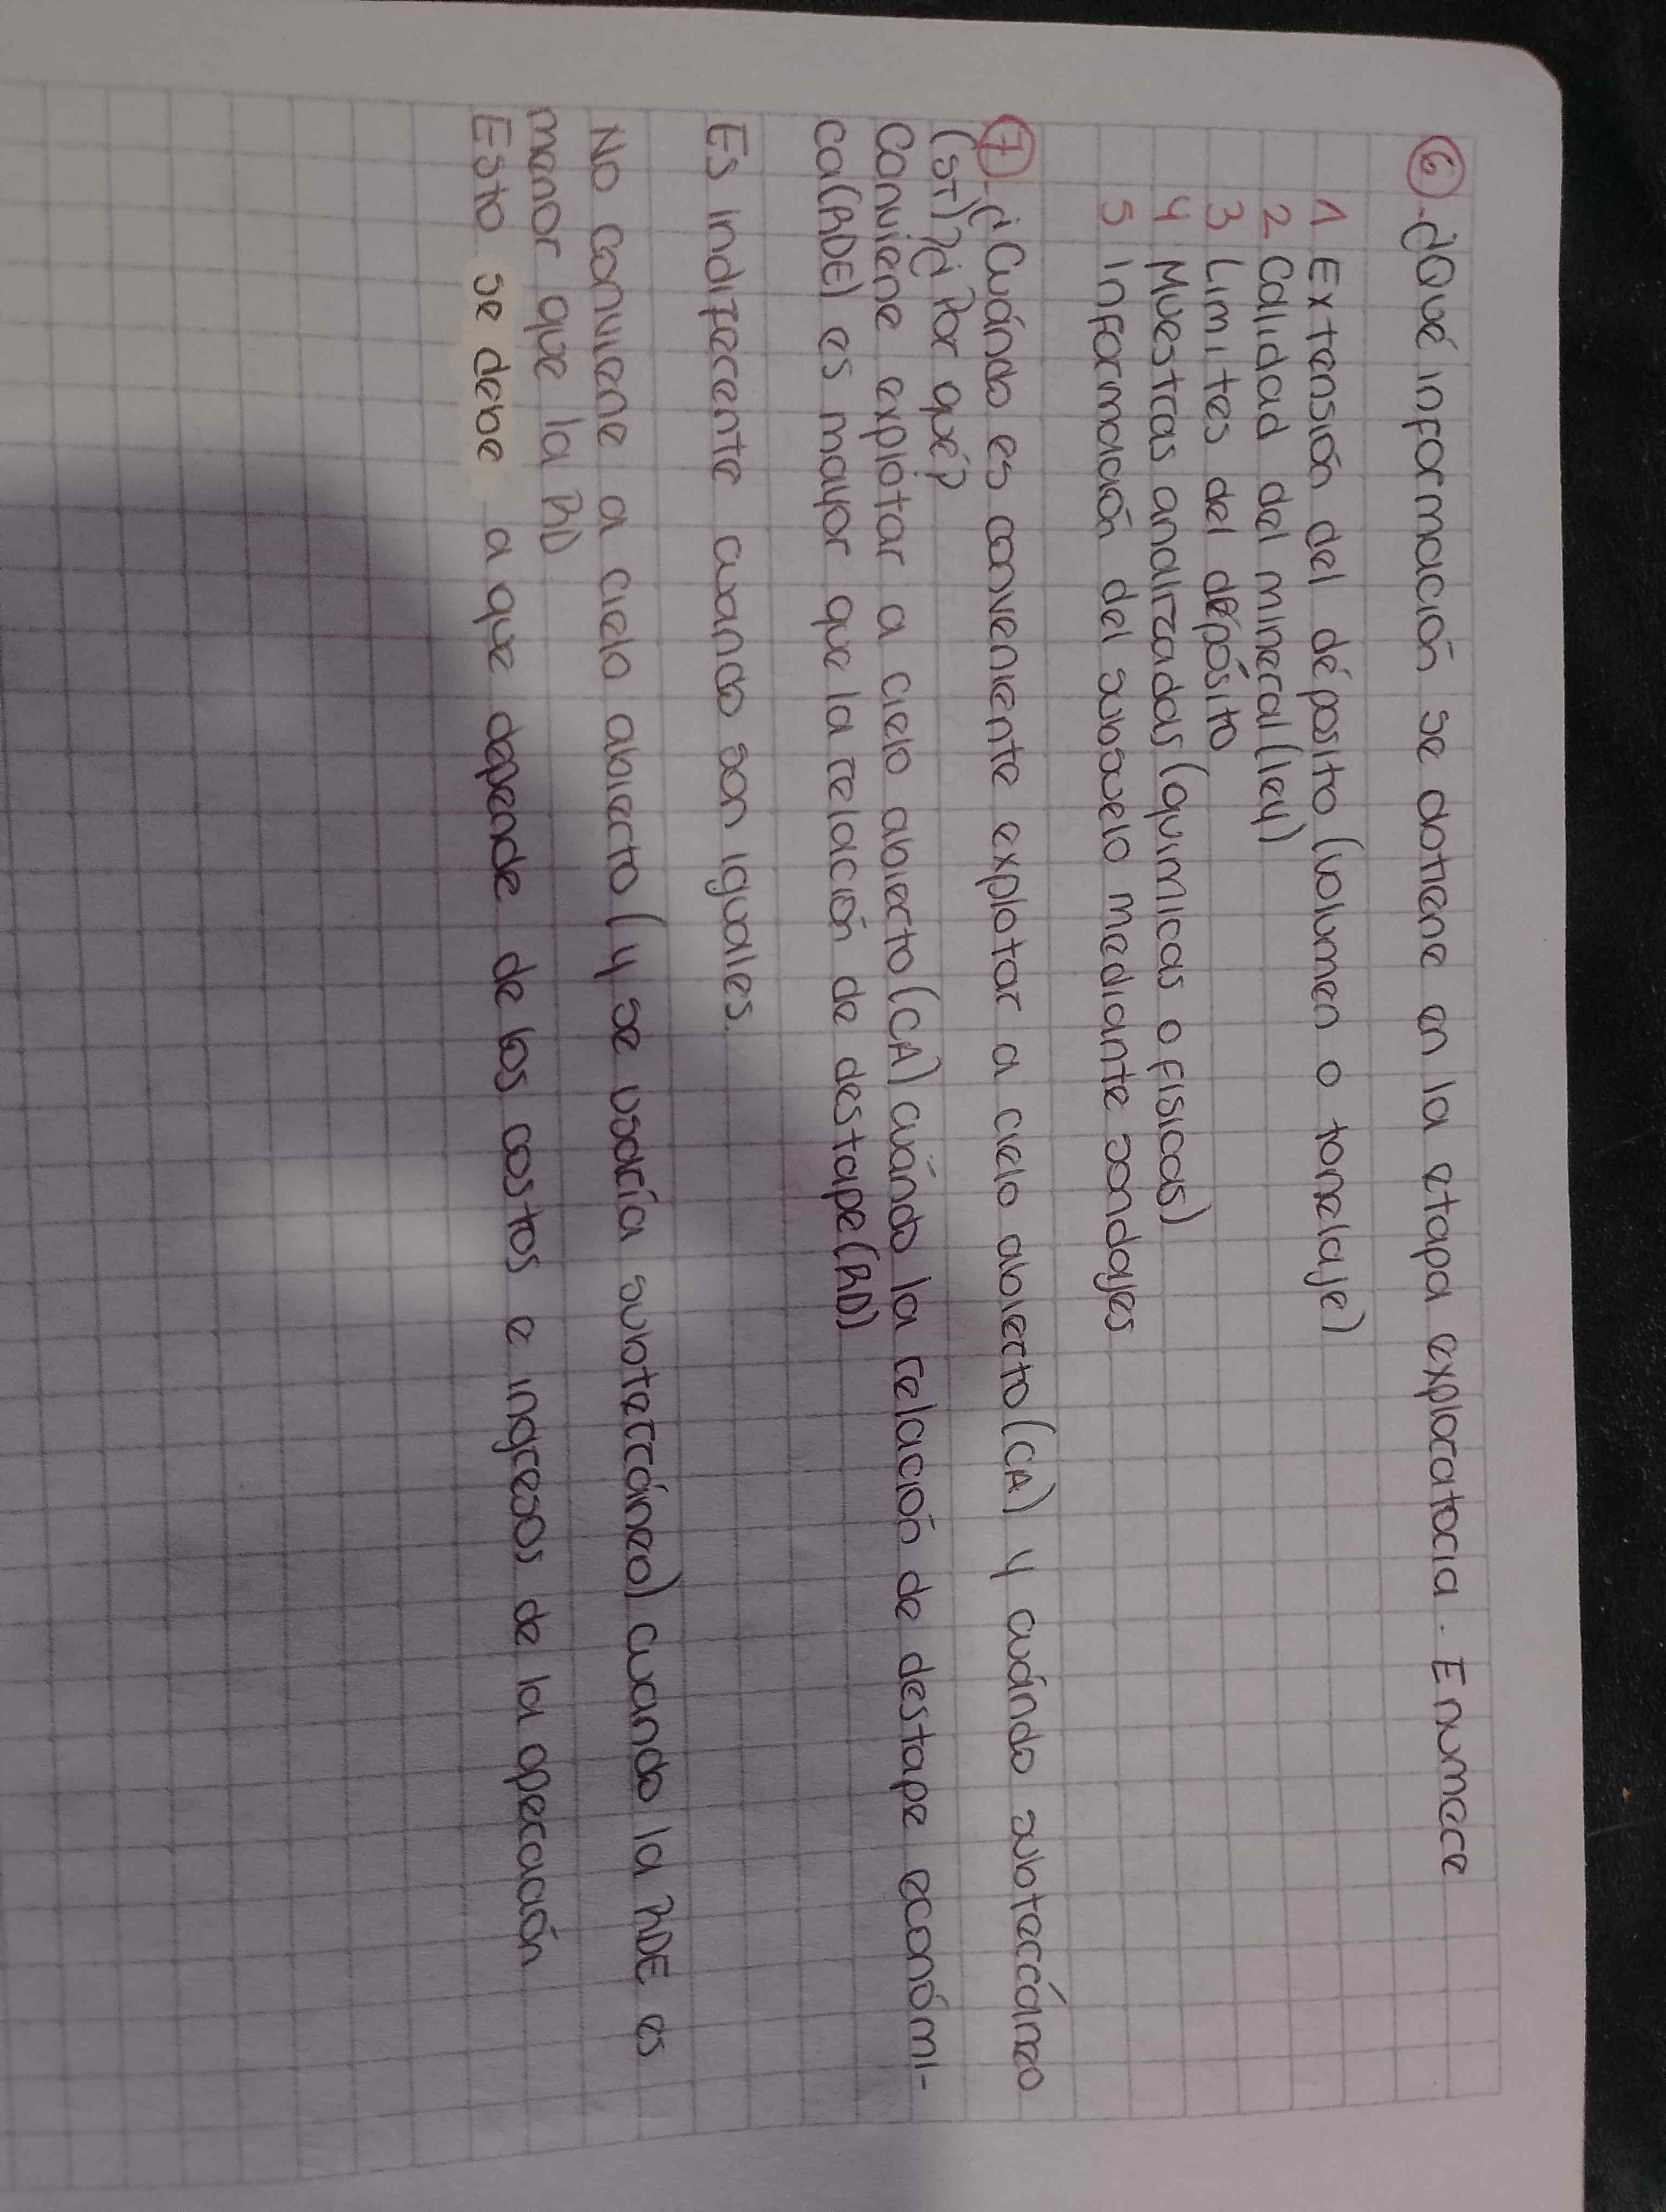 6 - ¿Qué información se obtiene en la etapa exploratoria. Enumere
1 Extensión del déposito (volumen o tonelaje)
2 Calidad del mineral (ley)
3 Limites del dépósito
4 Muestras analizadas (químicas o físicas)
5 Información del subsuelo mediante sondajes
7 - ¿Cuándo es conveniente explotar a cielo abierto (CA) y cuándo subterráneo
(ST)? ¿Por qué?
Conviene explotar a cielo abierto (CA) cuándo la relación de destape económi-
ca (RDE) es mayor que la relación de destape (RD)
Es indiferente cuando son iguales.
No conviene a cielo abierto (y se usaría subterráneo) cuando la RDE es
menor que la RD
Esto se debe a que depende de los costos e ingresos de la operación